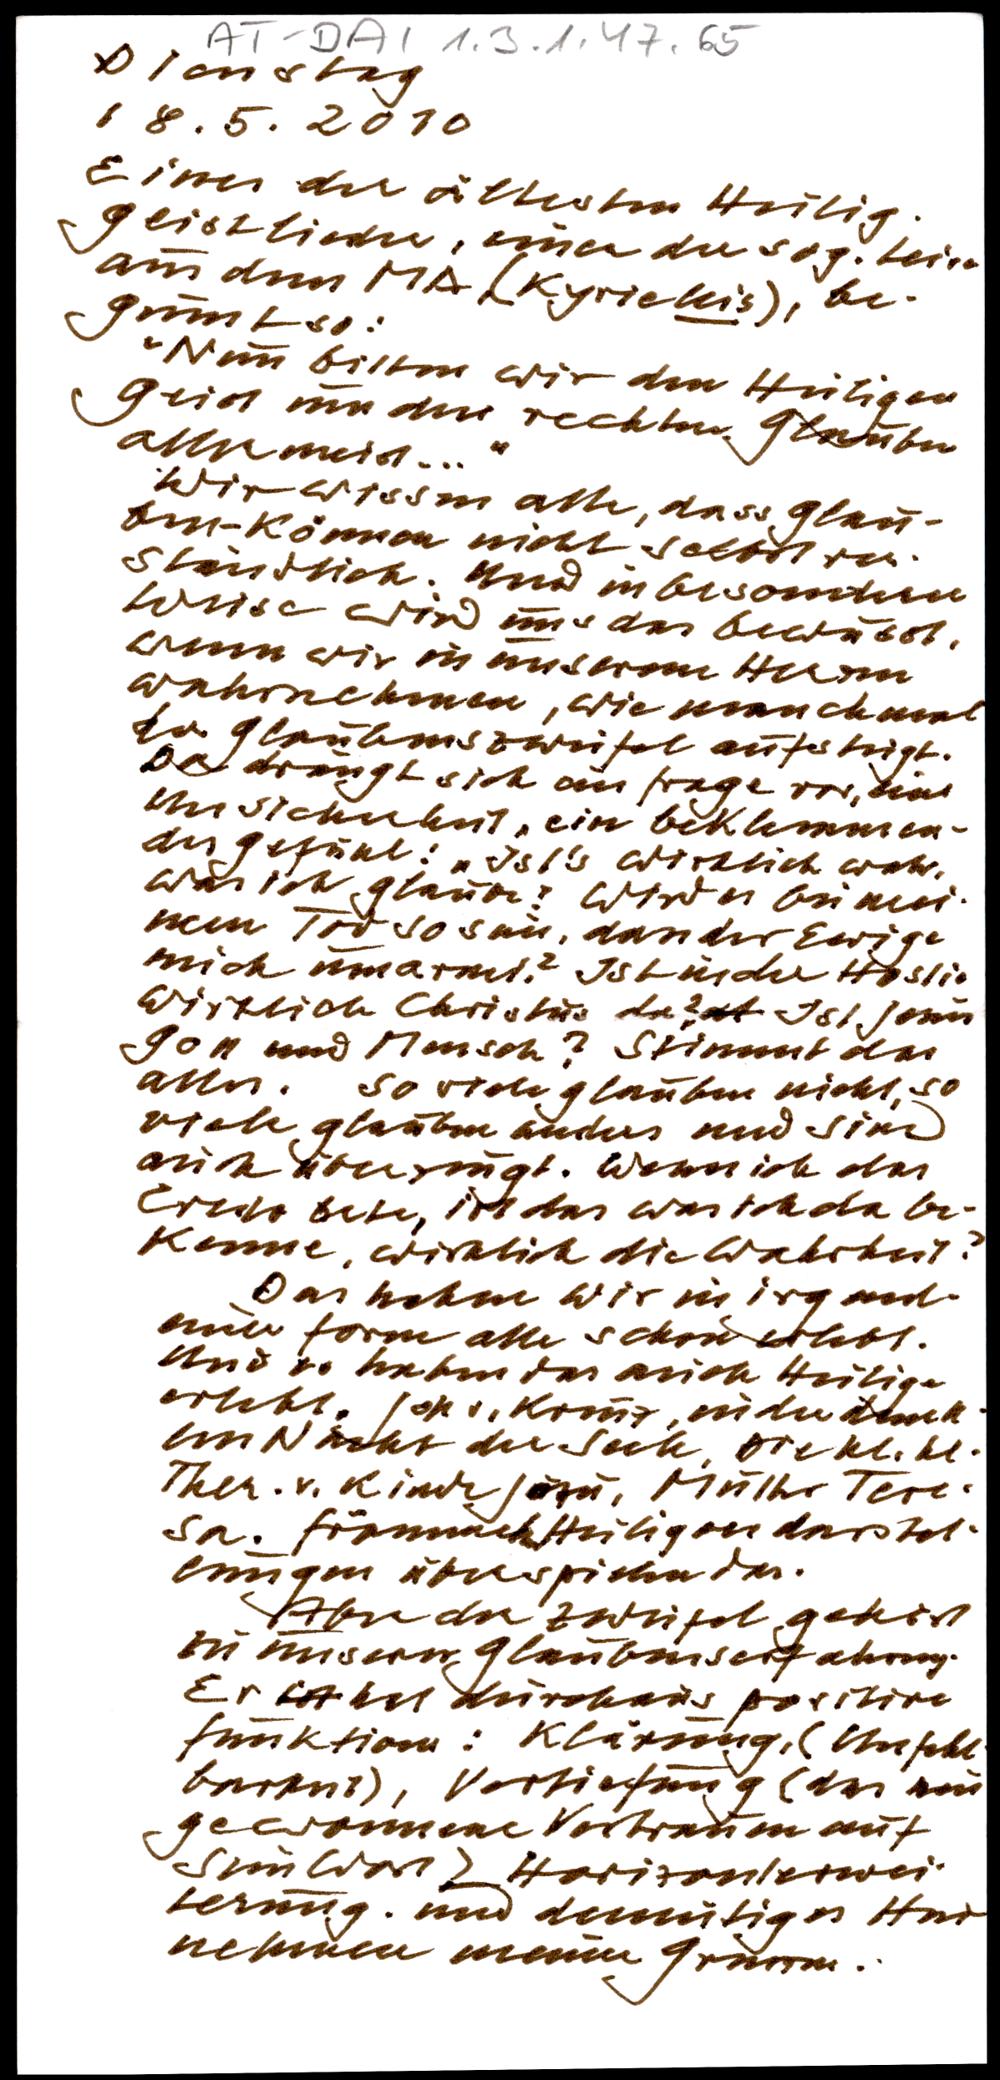 AT-DAI 1.3.1.47.65
Dienstag
18.5.2010
Eines der ältesten Heilig-
geistlieder, eines der sog. Leise
aus dem MA (Kyrieleis), be-
ginnt so:
"Nun bitten wir den Heiligen
Geist um den rechten Glauben
allermeist..."
Wir wissen alle, dass glau-
ben-Können nicht selbstver-
ständlich. Und in besonderer
Weise wird uns das bewusst,
wenn wir in unserem Herzen
wahrnehmen, wie manchmal
der Glaubenszweifel aufsteigt.
Da drängt sich eine Frage vor, eine
Unsicherheit, ein beklemmen-
des Gefühl: "Ist's wirklich wahr,
was ich glaube? Wird es bei mei-
nem Tod so sein, dass der Ewige
mich umarmt? Ist in der Hostie
wirklich Christus da? Ist Jesus
Gott und Mensch? Stimmt das
alles. So viele glauben nicht, so
viele glauben anders und sind
auch überzeugt. Wenn ich das
Credo bete, ist das was ich da be-
kenne, wirklich die Wahrheit?
Das haben wir in irgend-
einer Form alle schon erlebt.
Und so haben das auch Heilige
erlebt. Joh v. Kreuz, in der dunk-
len Nacht der Seele, Die kl. hl.
Ther. v. Kinde Jesu, Mutter Tere-
sa. Heiligendarstel-
lungen überspielen das.
Aber der Zweifel gehört
zu unserer Glaubenserfahrung.
Er hat durchaus positive
Funktion: Klärung, (Unfehl-
barkeit), Vertiefung (das neu
gewonnene Vertrauen auf
Sein Wort) Horizonterwei-
terung. und demütiges Hin-
nehmen meiner Grenzen.